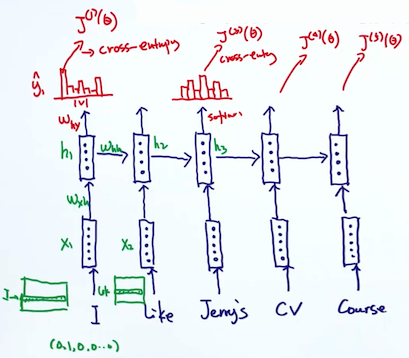 J⁽¹⁾(θ)
→ cross-entropy
J⁽³⁾(θ)
cross-entropy
J⁽⁴⁾(θ)
J⁽⁵⁾(θ)
ŷ₁
|V|
Why
softmax
h₁
Whh
h₂
h₃
Wxh
x₁
x₂
I →
I
Like
Jerry's
CV
Course
(0,1,0,0...0)